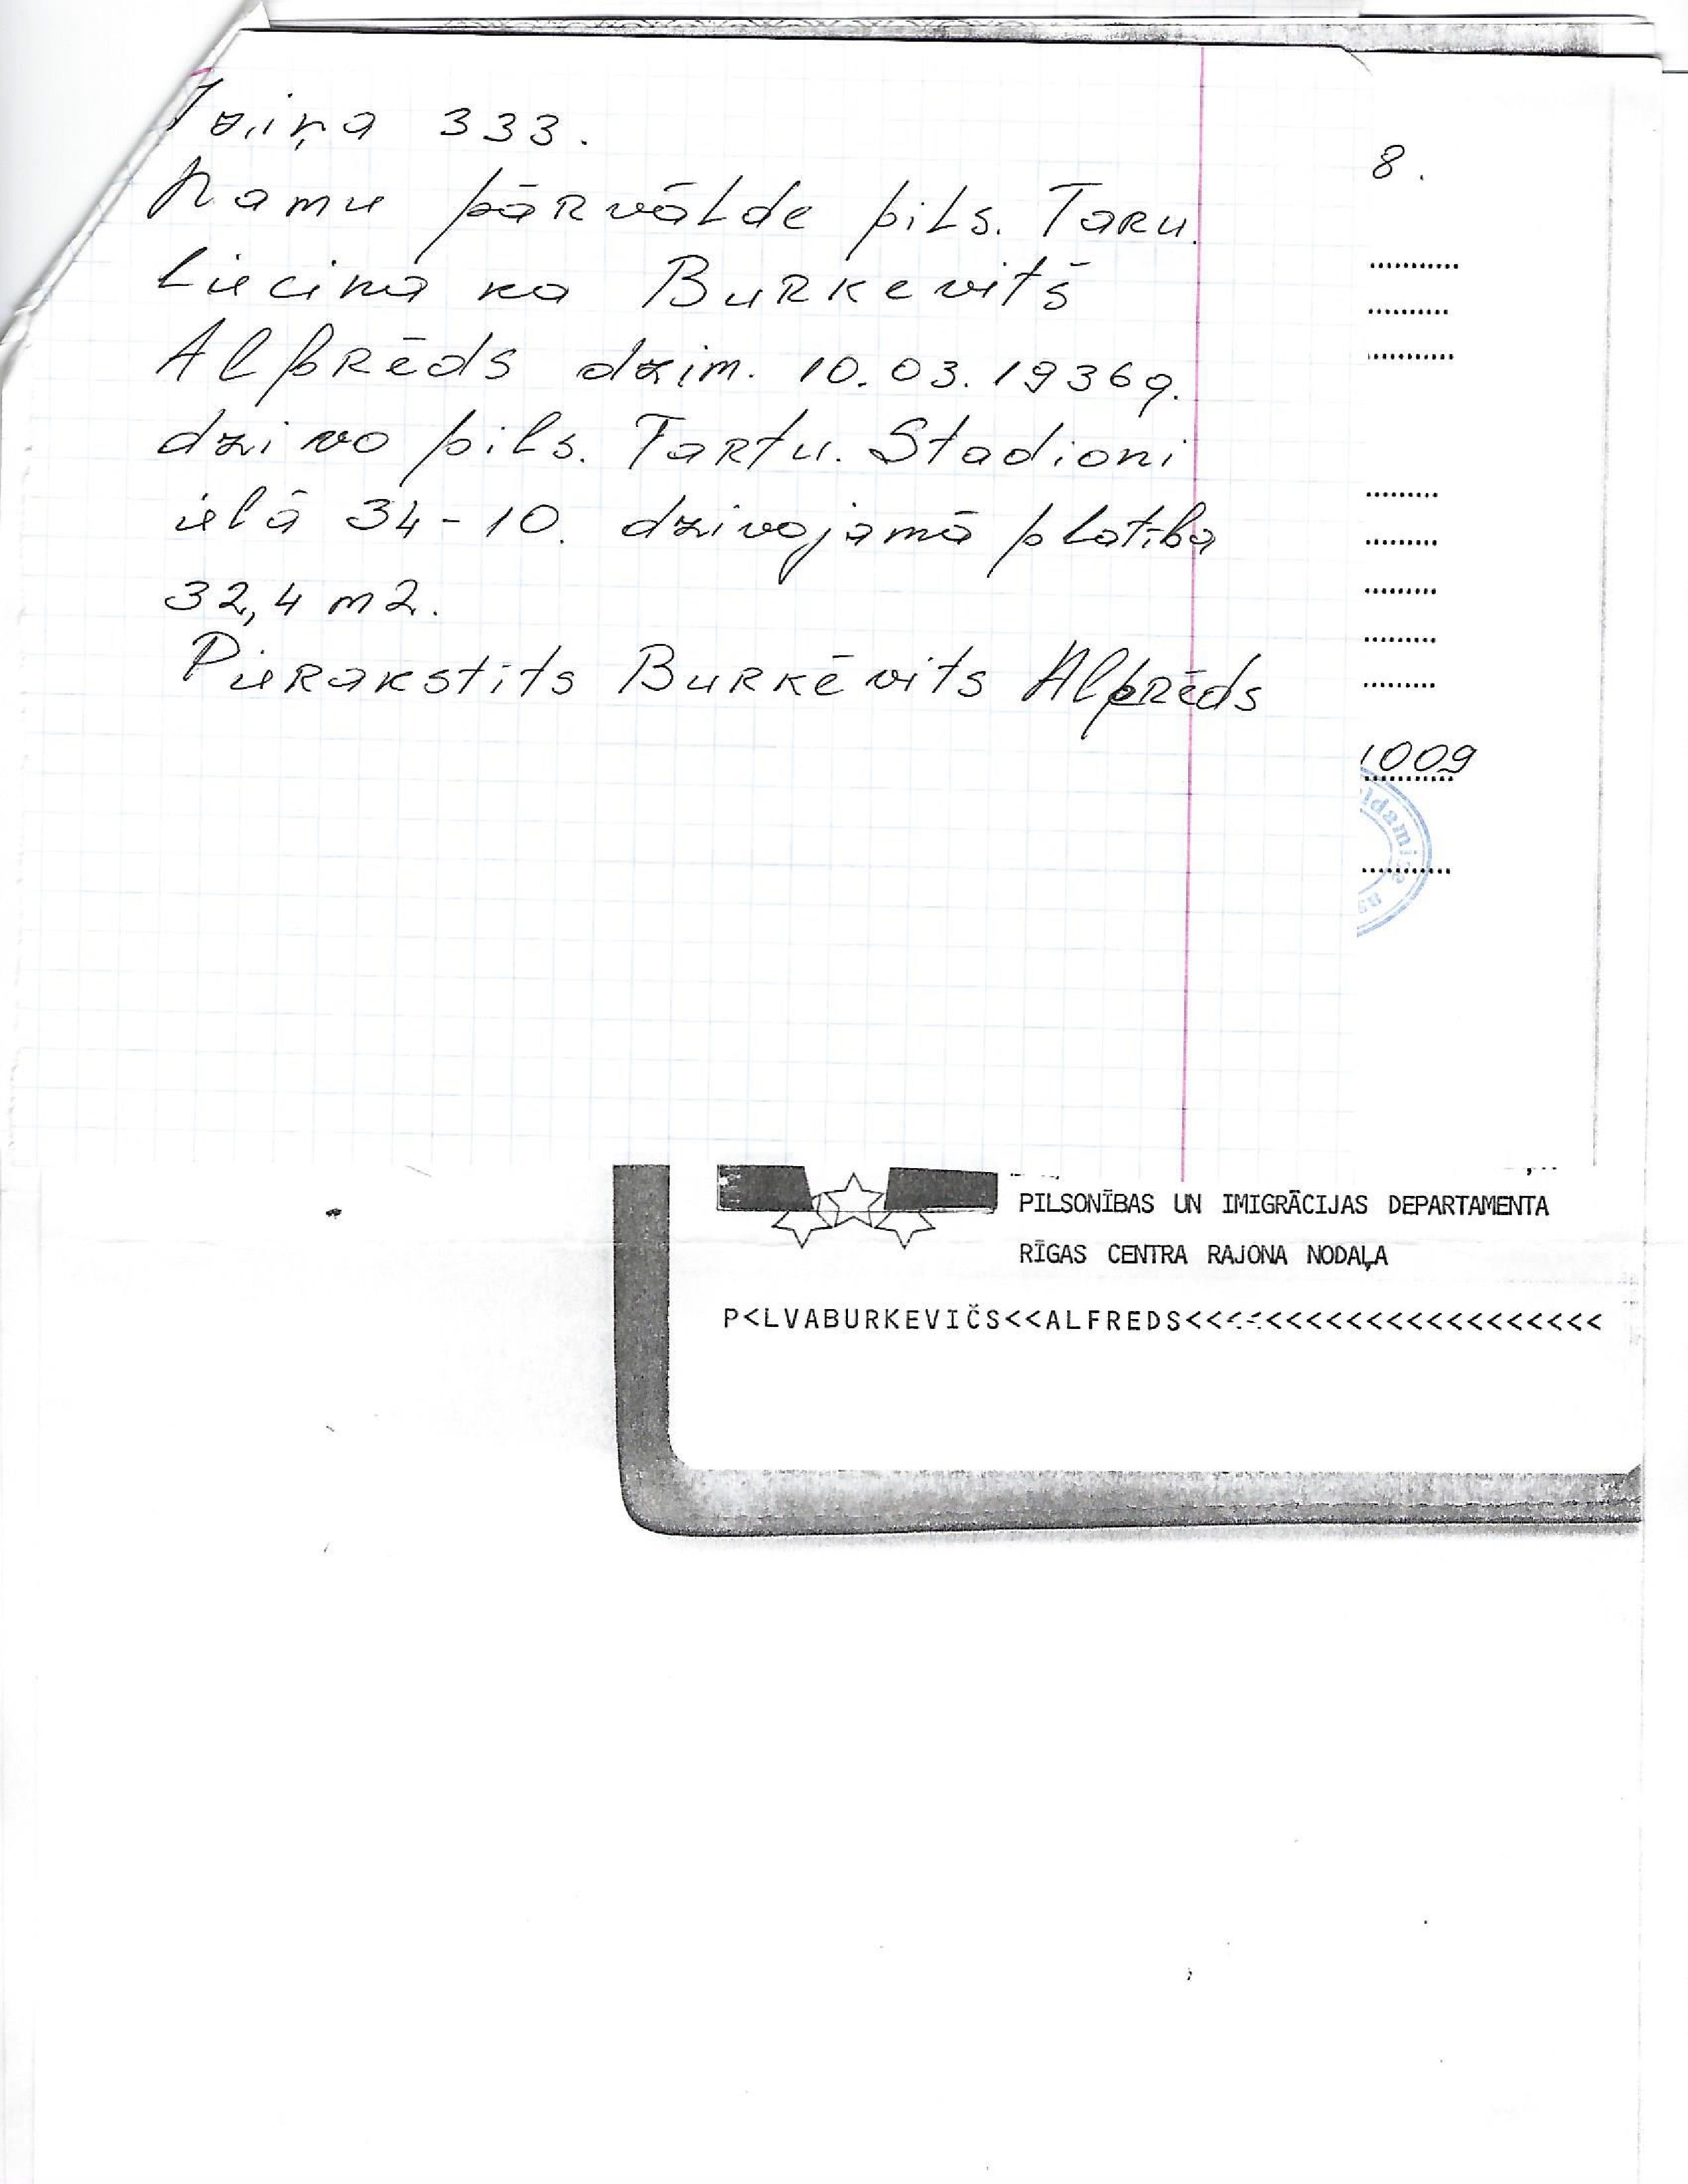 Iziņa 333.
Namu pārvālde pils. Taru.
Liecina ka Burkevitš
Alfrēds dzim. 10.03.1936g.
dzivo pils. Tartu. Stadioni
ielā 34-10. dzivojamā platiba
32,4 m2.
Pierakstits Burkēvits Alfrēds
8.
1009
ldamise
PILSONĪBAS UN IMIGRĀCIJAS DEPARTAMENTA
RĪGAS CENTRA RAJONA NODAĻA
P<LVABURKEVIČS<<ALFREDS<<<<<<<<<<<<<<<<<<<<<